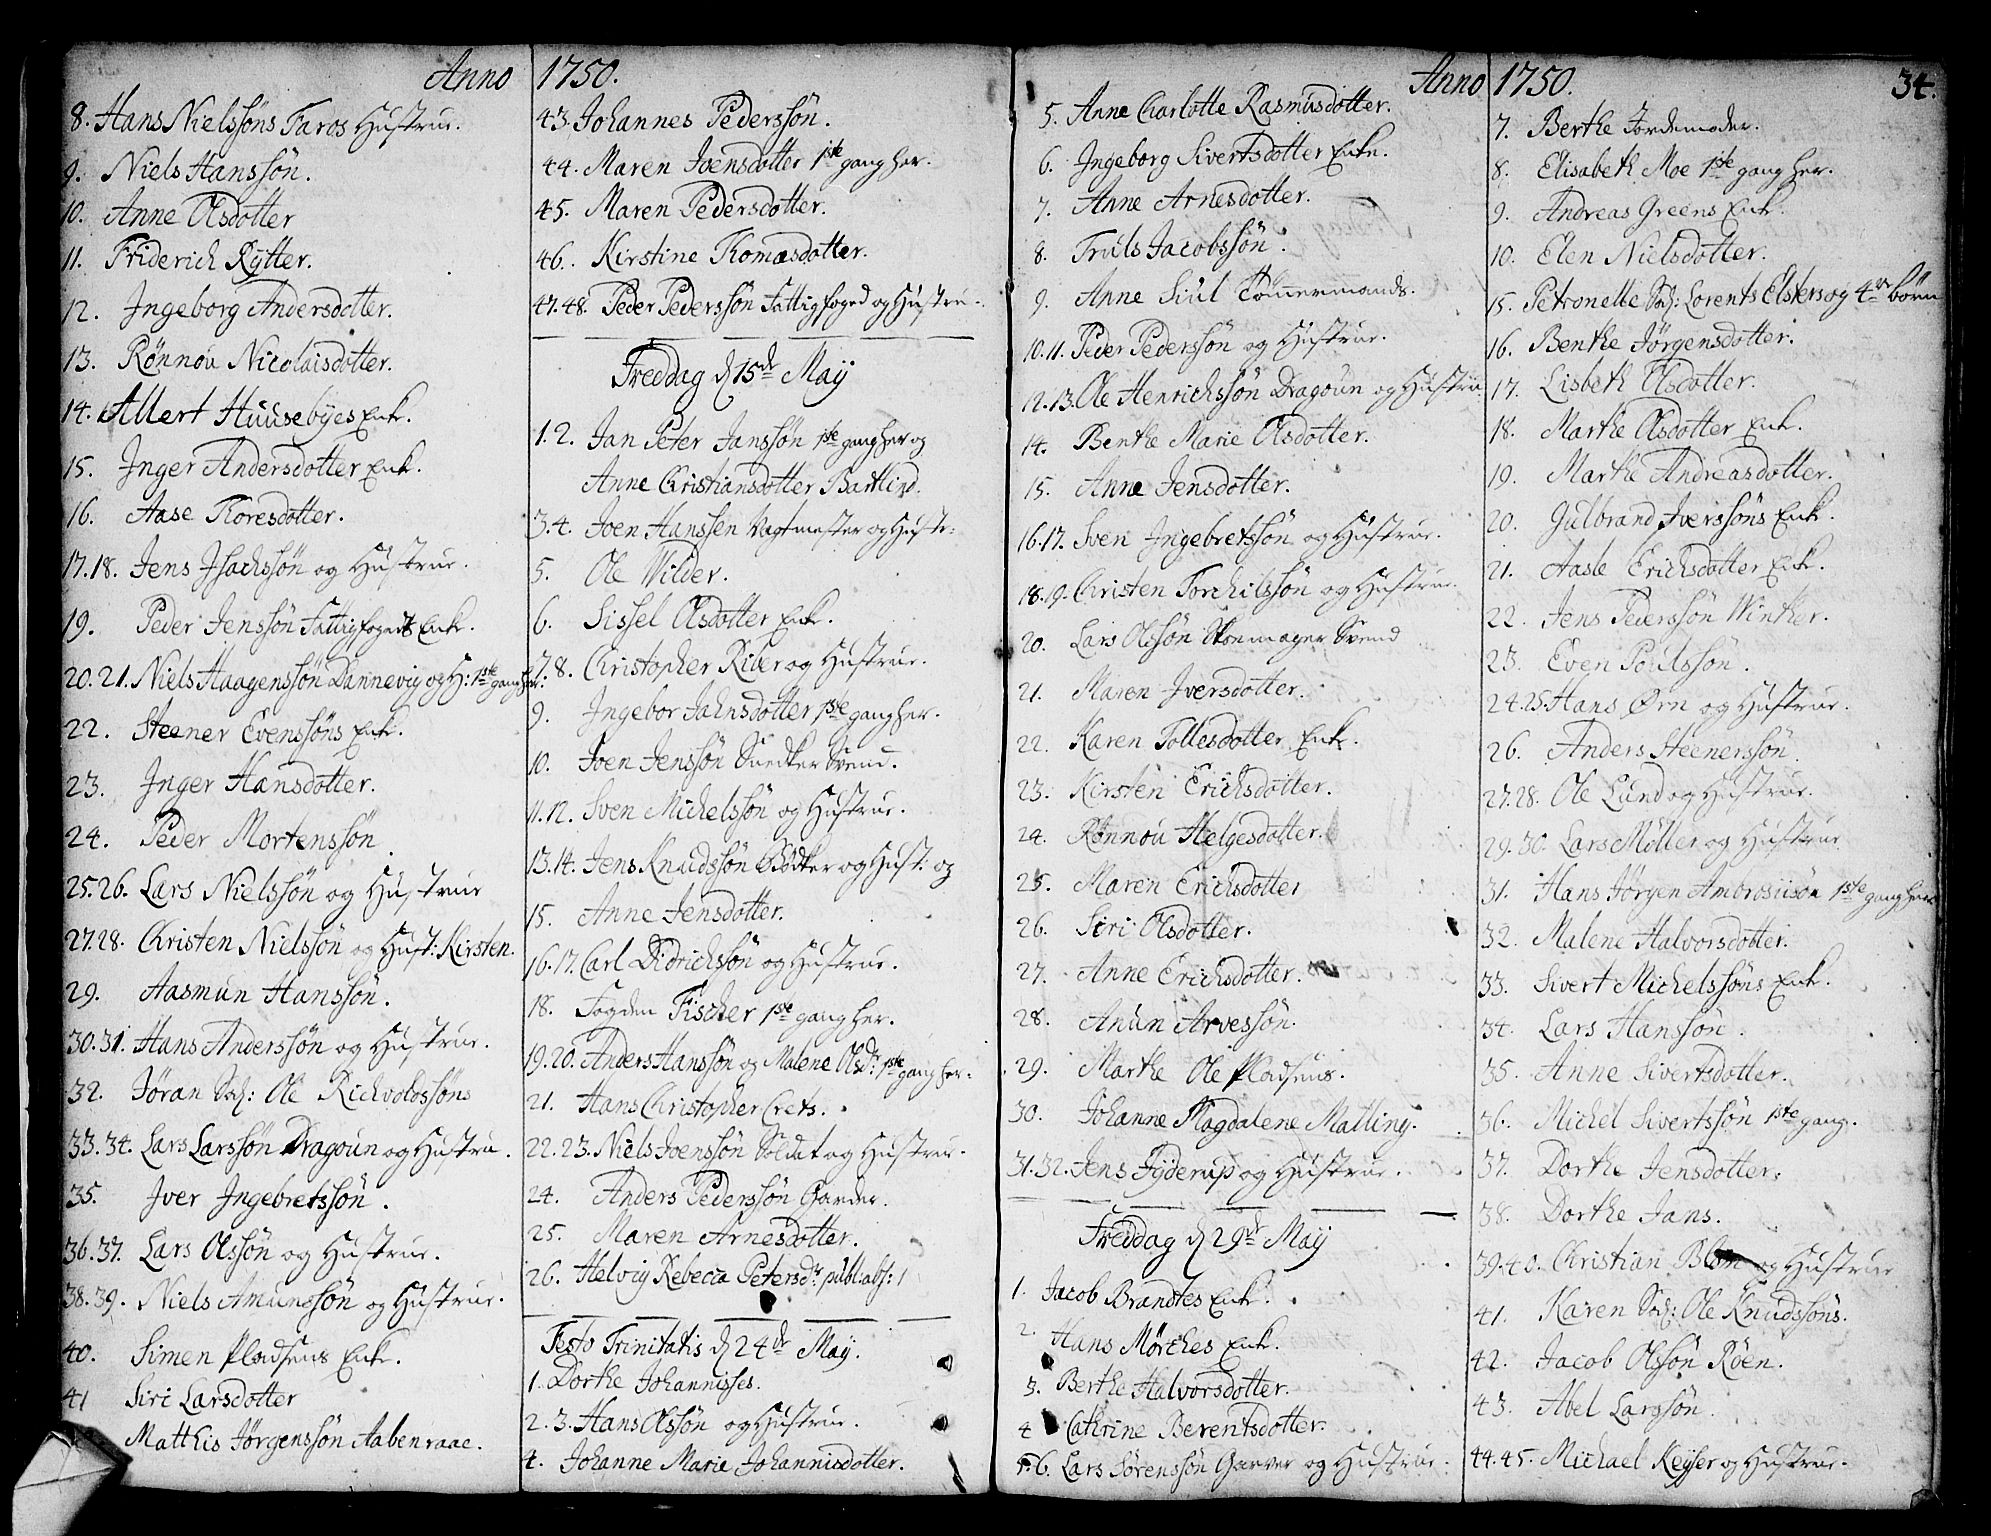 Anno 1750.
8. Hans Nielssøns Faros Hustrue.
9. Niels Hanssøn.
10. Anne Olsdotter
11. Friderich Rytter.
12. Ingeborg Andersdotter.
13. Rönnou Nicolaisdotter.
14. Allert Huusebyes Enk.
15. Inger Andersdotter Enk.
16. Aase Thoresdotter.
17.18. Jens Isachssøn og Hustrue.
19. Peder Jenssøn Fattigfogets Enk.
20.21. Niels Haagenssøn Dannevig og H: 1ste gang her.
22. Steener Evenssøns Enk.
23. Inger Hansdotter.
24. Peder Mortenssøn.
25.26. Lars Nielssøn og Hustrue
27.28. Christen Nielssøn og Hust: Kirsten.
29. Aasmun Hanssøn.
30.31. Hans Anderssøn og Hustrue.
32. Jøran Ole Richvoldssøns
33.34. Lars Larssøn Dragoun og Hustru.
35. Iver Ingebretssøn.
36.37. Lars Olssøn og Hustrue.
38.39. Niels Amunssøn og Hustrue.
40. Simen Pladsens Enk.
41 Siri Larsdotter
Matthis Jørgenssøn Aabenraae.
43. Johannes Pederssøn.
44. Maren Joensdotter 1ste gang her.
45. Maren Pedersdotter.
46. Kirstine Thomasdotter.
47.48. Peder Pederssøn Fattigfoged og Hustru.
Freddag d 15de May
1.2. Jan Peter Janssøn 1ste gang her og
Anne Christiansdotter Bartlind.
3.4. Joen Hanssen Vagtmester og Hustr:
5. Ole Wilder.
6. Sissel Olsdotter Enk.
7.8. Christopher Riber og Hustrue.
9. Ingebor Jahnsdotter 1ste gang her.
10. Joen Jenssøn Snedker Svend.
11.12. Sven Michelssøn og Hustrue.
13.14. Jens Knudssøn Bødker og Hust: og
15. Anne Jensdotter.
16.17. Carl Didrichssøn og Hustrue.
18. Fogden Fischer 1ste gang her.
19.20. Anders Hanssøn og Malene Olsd: 1ste gang her.
21. Hans Christopher Crets.
22.23. Niels Joenssøn Soldat og Hustrue.
24. Anders Pederssøn Garder.
25. Maren Arnesdotter.
26. Helvig Rebecca Petersd: publ: abs:
Festo Trinitatis d 24de May.
1. Dorthe Johannisses.
2.3. Hans Olssøn og Hustrue.
4. Johanne Marie Johannisdotter.
Anno 1750. 34.
5. Anne Charlotte Rasmusdotter.
6. Ingeborg Sivertsdotter Enke.
7. Anne Arnesdotter.
8. Truls Jacobssøn.
9. Anne Siul Tömmermands.
10.11. Peder Pederssøn og Hustrue.
12.13. Ole Henrichssøn Dragoun og Hustru.
14. Benthe Marie Olsdotter.
15. Anne Jensdotter.
16.17. Sven Ingebretssøn og Hustrue.
18.19. Christen Torchilssøn og Hustrue.
20. Lars Olssøn Skoemager Svend
21. Maren Iversdotter.
22. Karen Tollesdotter Enk.
23. Kirsten Erichsdotter.
24. Rønnou Helgesdotter.
25. Maren Erichsdotter
26. Siri Olsdotter.
27. Anne Erichsdotter.
28. Anun Arvessøn.
29. Marthe Ole Pladsens.
30. Johanne Magdalene Malling.
31.32. Jens Fyderup og Hustrue.
Freddag d 29de May
1. Jacob Brandtes Enk.
2. Hans Mørthes Enk.
3. Berthe Halvorsdotter.
4 Cathrine Berentsdotter.
5.6. Lars Sørenssøn Garver og Hustrue.
7. Berthe Jordemoder.
8. Elisabeth Moe 1ste gang her.
9. Andreas Greens Enk.
10. Elen Nielsdotter.
15. Petronelle Lorents Elsters og 4re börn
16. Benthe Jörgensdotter.
17. Lisbeth Olsdotter.
18. Marthe Olsdotter Enk.
19. Marthe Andreasdotter.
20. Gulbrand Iverssøns Enk.
21. Aasle Erichsdotter Enk.
22. Jens Pederssøn Winther.
23. Even Poulssøn.
24.25. Hans Ørn og Hustrue.
26. Anders Steenerssøn.
27.28. Ole Lund og Hustrue.
29.30. Lars Møller og Hustrue
31. Hans Jørgen Ambrosiisøn 1ste gang her
32. Malene Halvorsdotter.
33. Sivert Michelssøns Enk.
34. Lars Hanssøn.
35. Anne Sivertsdotter.
36. Michel Sivertssøn 1ste gang.
37. Dorthe Jensdotter.
38. Dorthe Jans.
39.40. Christian Blom og Hustrue
41. Karen Ole Knudssøns.
42. Jacob Olssøn Røen.
43. Abel Larssøn.
44.45. Michael Keyser og Hustrue.